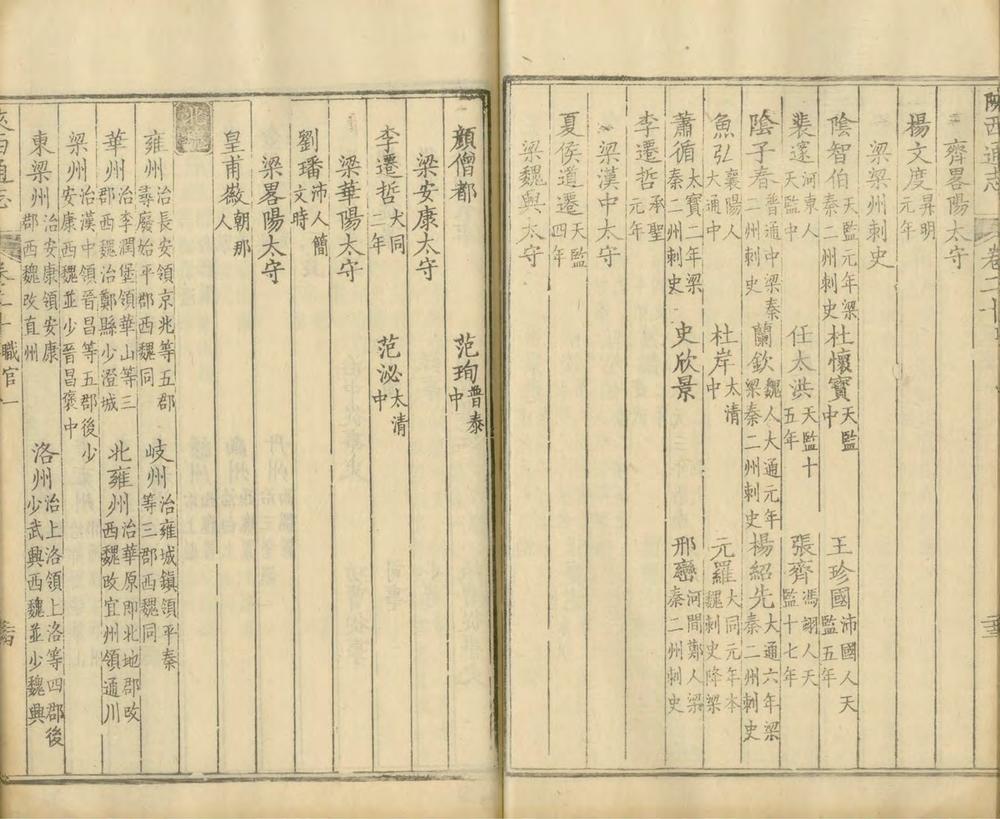 陝西通志 卷二十
齊畧陽太守
楊文度昇明元年
梁梁州刺史
陰智伯天監元年梁秦二州刺史 杜懷寶天監中 王珍國沛國人天監五年
裴邃河東人天監中 任太洪天監十五年 張齊馮翊人天監十七年
陰子春普通中梁秦二州刺史 蘭欽魏人大通元年梁秦二州刺史 楊紹先大通六年梁秦二州刺史
魚弘襄陽人大通中 杜岸太清中 元羅大同元年本魏刺史降梁
蕭循太寶二年梁秦二州刺史 史欣景 邢巒河間鄭人梁秦二州刺史
李遷哲承聖元年
梁漢中太守
夏侯道遷天監四年
梁魏興太守
顏僧都 范珣普泰中
梁安康太守
李遷哲大同二年 范泌太清中
梁華陽太守
劉璠沛人簡文時
梁畧陽太守
皇甫徽朝那人
北魏
雍州治長安領京兆等五郡後廢始平郡西魏同 岐州治雍城鎮領平秦等三郡西魏同
華州治李潤堡領華山等三郡西魏治鄭縣少澄城 北雍州治華原即北地郡改西魏改宜州領通川
梁州治漢中領晉昌等五郡後少安康西魏並少晉昌褒中 洛州治上洛領上洛等四郡後少武興西魏並少魏興
東梁州治安康領安康郡西魏改直州
陝西通志 卷二十 職官一